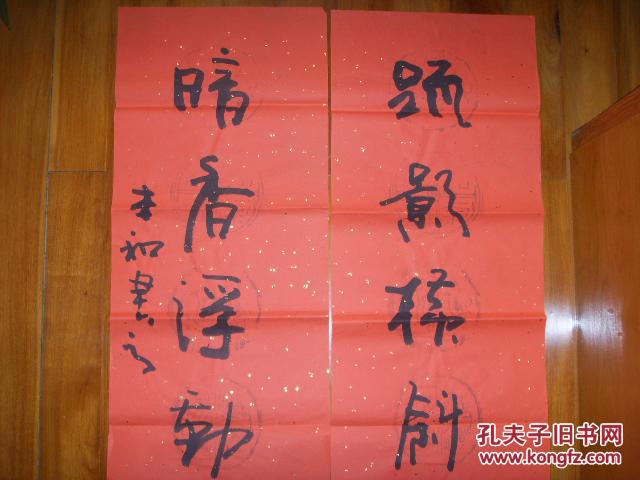 疏影横斜
暗香浮動
孔夫子旧书网
www.kongfz.com